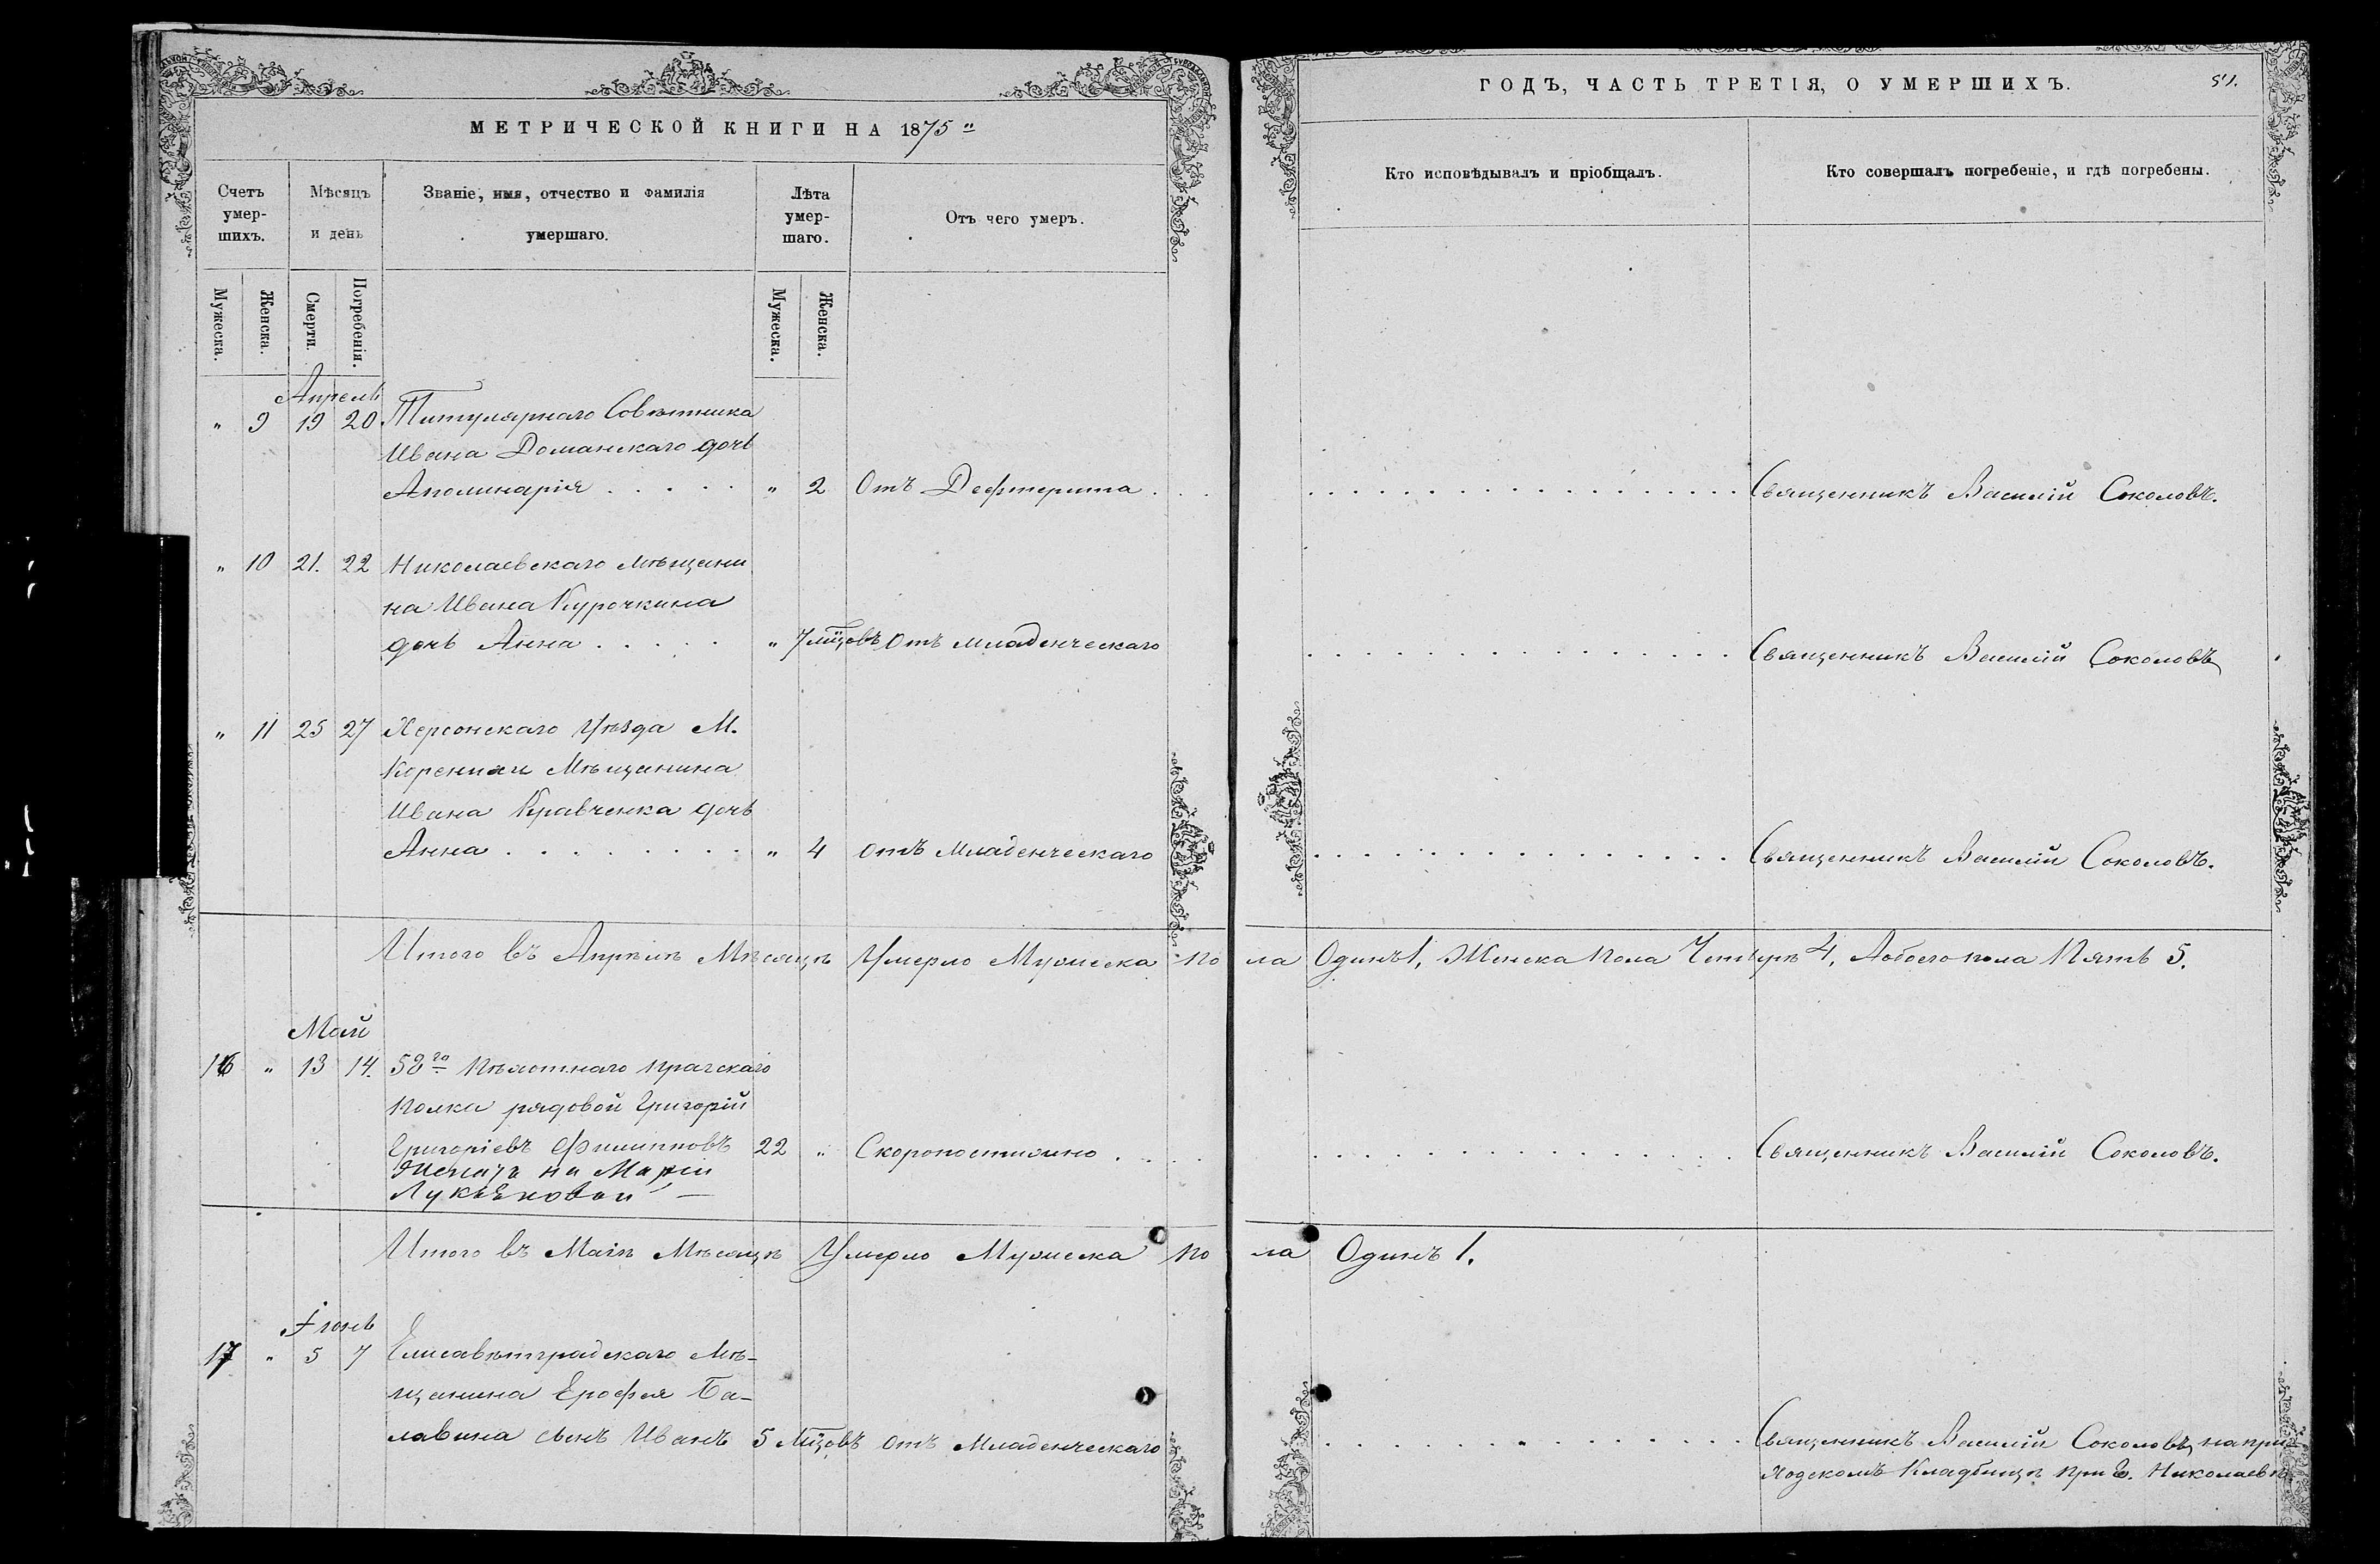 МЕТРИЧЕСКОЙ КНИГИ НА 1875"
Счетъ умер- шихъ.
Мѣсяцъ и день
Званіе, имя, отчество и фамилія умершаго.
Лѣта умер- шаго.
Отъ чего умеръ.
Мужеска.
Женска.
Смерти.
Погребенія.
Мужеска.
Женска.
Апрель
" 9 19 20 Титулярнаго Совѣтника
Ивана Доманскаго дочь
Аполинарія . . . . . " 2 Отъ Дефтерита . . .
" 10 21. 22 Николаевскаго мѣщани
на Ивана Курочкина
дочь Анна . . . . . " 7 мцовъ Отъ младенческаго
" 11 25 27 Херсонскаго Уѣзда М.
Корениха Мѣщанина
Ивана Кравченка дочь
Анна . . . . . . . . " 4 отъ Младенческаго
Итого въ Апрѣлѣ Мѣсяцѣ Умерло Мужеска по
Май
16 " 13 14. 58го Пѣхотнаго Прагскаго
полка рядовой Григорій
Григоріевъ Филипповъ 22 " Скоропостижно . . . .
Женатъ на Маріи
Лукьяновой —
Итого въ Маіѣ Мѣсяцѣ Умерло Мужеска по
Іюнь
17 " 5 7 Елисавѣтградскаго Мѣ-
щанина Ерофея Ба-
лавина сынъ Иванъ 5 Мцовъ отъ Младенческаго
ГОДЪ, ЧАСТЬ ТРЕТІЯ, О УМЕРШИХЪ.
51.
Кто исповѣдывалъ и пріобщалъ.
Кто совершалъ погребеніе, и гдѣ погребены.
Священникъ Василій Соколовъ.
Священникъ Василій Соколовъ
Священникъ Василій Соколовъ.
ла Одинъ 1, Женска пола Четыре 4, Аобоего пола Пять 5.
Священникъ Василій Соколовъ.
ла Одинъ 1.
Священникъ Василій Соколовъ, на при-
ходскомъ Кладбищѣ при г. Николаевѣ.